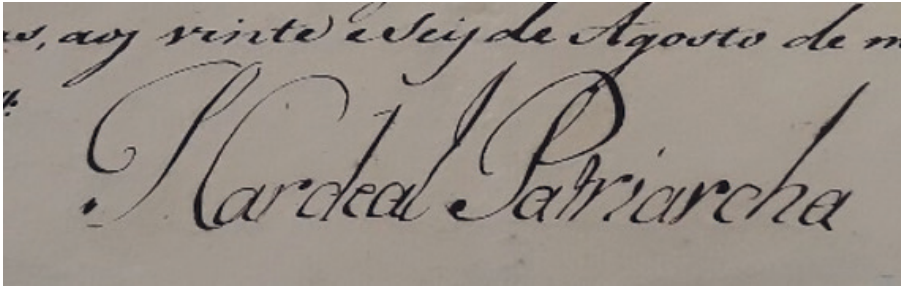 s, aos vinte e Seis de Agosto de m
J Cardeal Patriarcha